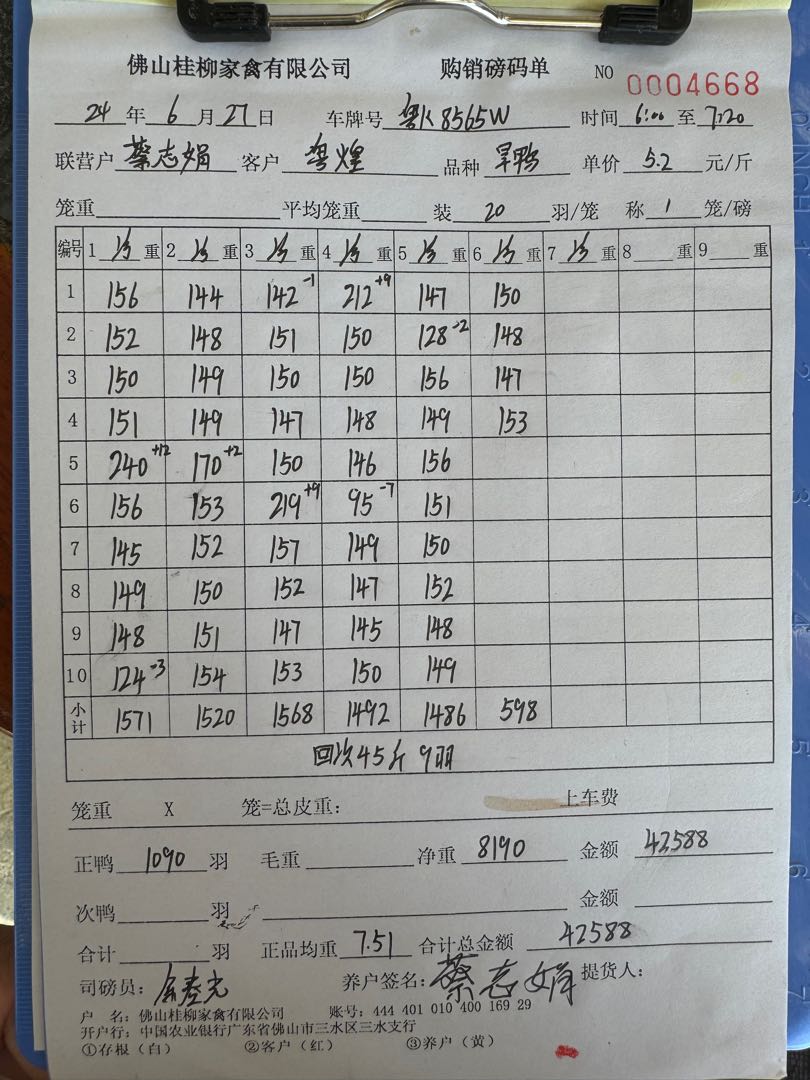 佛山桂柳家禽有限公司 购销磅码单 NO 0004668
24 年 6 月 27 日 车牌号 粤K 8565W 时间 6:00 至 7:20
联营户 蔡志娟 客户 粤煌 品种 旱鸭 单价 5.2 元/斤
笼重 平均笼重 装 20 羽/笼 称 1 笼/磅
编号 1 重 2 重 3 重 4 重 5 重 6 重 7 重 8 重 9 重
1 156 144 142 -1 212 +9 147 150
2 152 148 151 150 128 -2 148
3 150 149 150 150 156 147
4 151 149 147 148 149 153
5 240 +12 170 +2 150 146 156
6 156 153 219 +9 95 -7 151
7 145 152 157 149 150
8 149 150 152 147 152
9 148 151 147 145 148
10 124 -3 154 153 150 149
小计 1571 1520 1568 1492 1486 598
回次45斤 9羽
笼重 X 笼=总皮重: 上车费
正鸭 1090 羽 毛重 净重 8190 金额 42588
次鸭 羽 金额
合计 羽 正品均重 7.51 合计总金额 42588
司磅员: 养户签名: 蔡志娟 提货人:
户 名: 佛山桂柳家禽有限公司 账号: 444 401 010 400 169 29
开户行: 中国农业银行广东省佛山市三水区三水支行
①存根（白） ②客户（红） ③养户（黄）